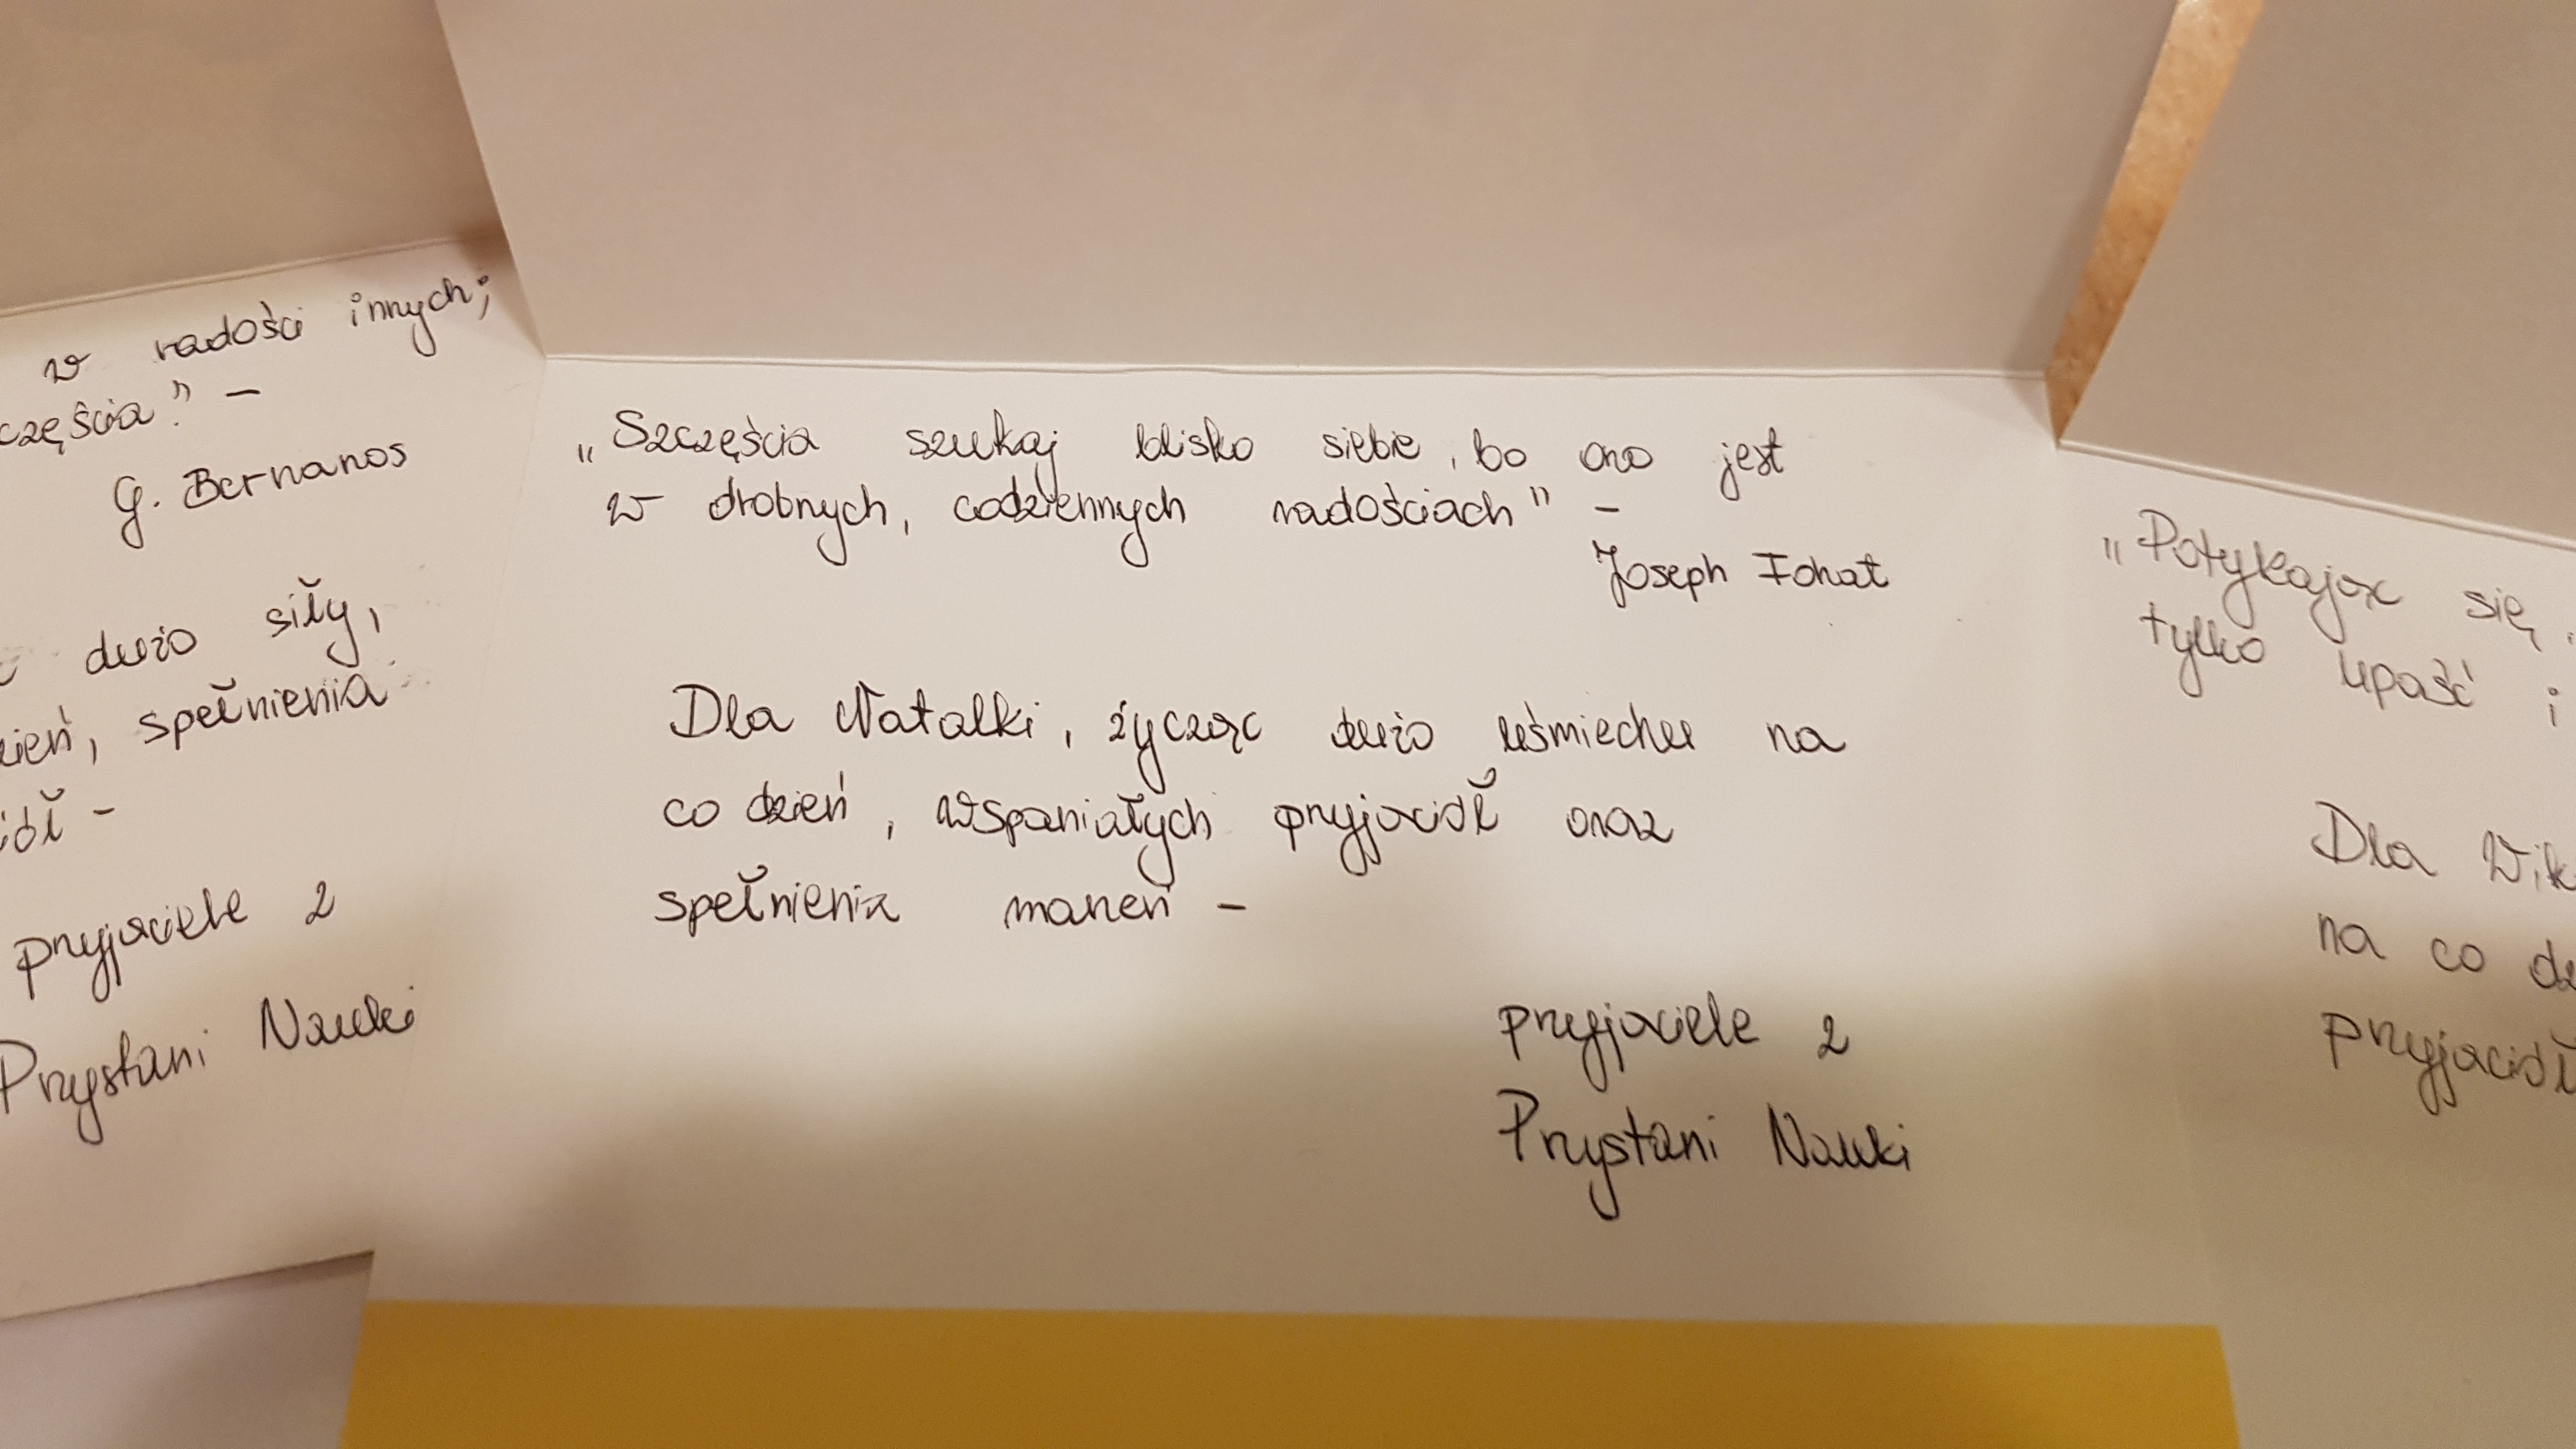 w radości innych;
częścia" –
G. Bernanos
dużo siły,
zień, spełnienia
iół –
przyjaciele z
Przystani Nauki
„Szczęścia szukaj blisko siebie, bo ono jest
w drobnych, codziennych radościach" –
Joseph Fohat
Dla Natalki, życząc dużo uśmiechu na
co dzień, wspaniałych przyjaciół oraz
spełnienia marzeń –
przyjaciele z
Przystani Nauki
„Potykając się,
tylko upaść i
Dla Wik
na co dz
przyjaciół